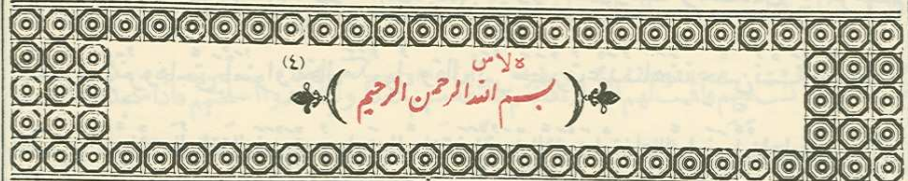 (٤)
بسم الله الرحمن الرحيم